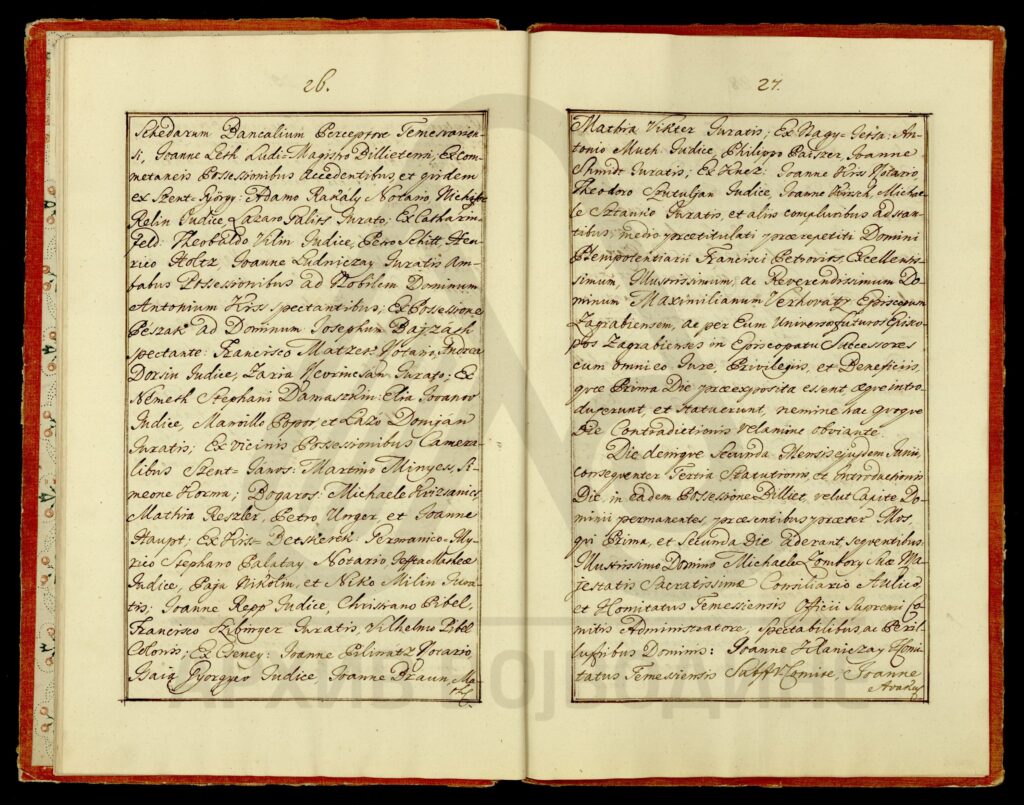 26.
Schedarum Bancalium Perceptore Temesvarien-
si, Joanne Leth Ludi-Magistro Billietensi, Ex com-
metaneis Possessionibus Accedentibus, et qvidem
ex Szent-György: Adamo Rakaly Notario, Michaele
Relin Judice, Lazaro Jurato; Ex Catharin-
feld: Theobaldo Vilin Judice, Petro Schitt, Hen-
rico Holtz, Joanne Ludniczay Juratis Am-
babus Possessionibus ad Nobilem Dominum
Antonium Kiss spectantibus; Ex Possessione
Peszak ad Dominum Josephum Bajzath
spectante: Francisco Matzer Notario, Andrea
Dorsin Judice, Zaria Jurato; Ex
Németh Stephani Damaszkin: Elia Jovanov
Judice, Manoillo Popov, et Lazo Domjan
Juratis; Ex vicinis Possessionibus Camera-
libus Szent-Janos: Martino Minyes, Si-
meone Korma; Bogaros: Michaele Krizsanics,
Mathia Reszler, Petro Unger, et Joanne
Haupt; Ex Kiss-Betskerek: Germanico-Illy-
rico Stephano Palatay Notario,
Judice, Paja Nikolin, et Niko Milin Jura-
tis; Joanne Repp Judice, Christiano Bibel,
Francisco Juratis, Vilhelmo Bibel
Colonis; Ex Cseney: Joanne Notario
Isaia Gyorgyev Judice, Joanne Braun, Ma-
thia
27.
Mathia Vikter Juratis; Ex Nagy-Jetsa: An-
tonio Muth Judice, Philippo Paiszer, Joanne
Shmidt Juratis; Ex Knez: Joanne Kiss Notario,
Theodoro Judice, Joanne Kirsch, Michae-
le Sztanko Juratis, et aliis compluribus adstan-
tibus; medio praetitulati praerepetiti Domini
Plenipotentiarii Francisci Petrovits, Excellentis-
simum, Illustrissimum, ac Reverendissimum Do-
minum Maximilianum Verhovatz Episcopum
Zagrabiensem, ac per Eum Universos futuros Episco-
pos Zagrabienses in Episcopatu Successores
cum omni eo Jure, Privilegiis, et Beneficiis,
qvae Prima Die praeexposita essent aeqve intro-
duxerunt, et statuerunt, nemine hac qvoqve
Die Contradictionis velamine obviante.
Die deniqve Secunda Mensis ejusdem Junii,
conseqventer Tertia Statutionis, et Introductionis
Die, in eadem Possessione Billiet, velut Capite Do-
minii permanentes, praesentibus praeter Illos,
qvi Prima, et Secunda Die aderant seqventibus:
Illustrissimo Domino Michaele Zombory Suae Ma-
jestatis Sacratissimae Consiliario Aulico
et Comitatus Temessiensis Officii Supremi Co-
mitis Administratore, Spectabilibus, ac Peril-
lustribus Dominis: Joanne Klaniczay Comi-
tatus Temessiensis Subst. V. Comite, Joanne